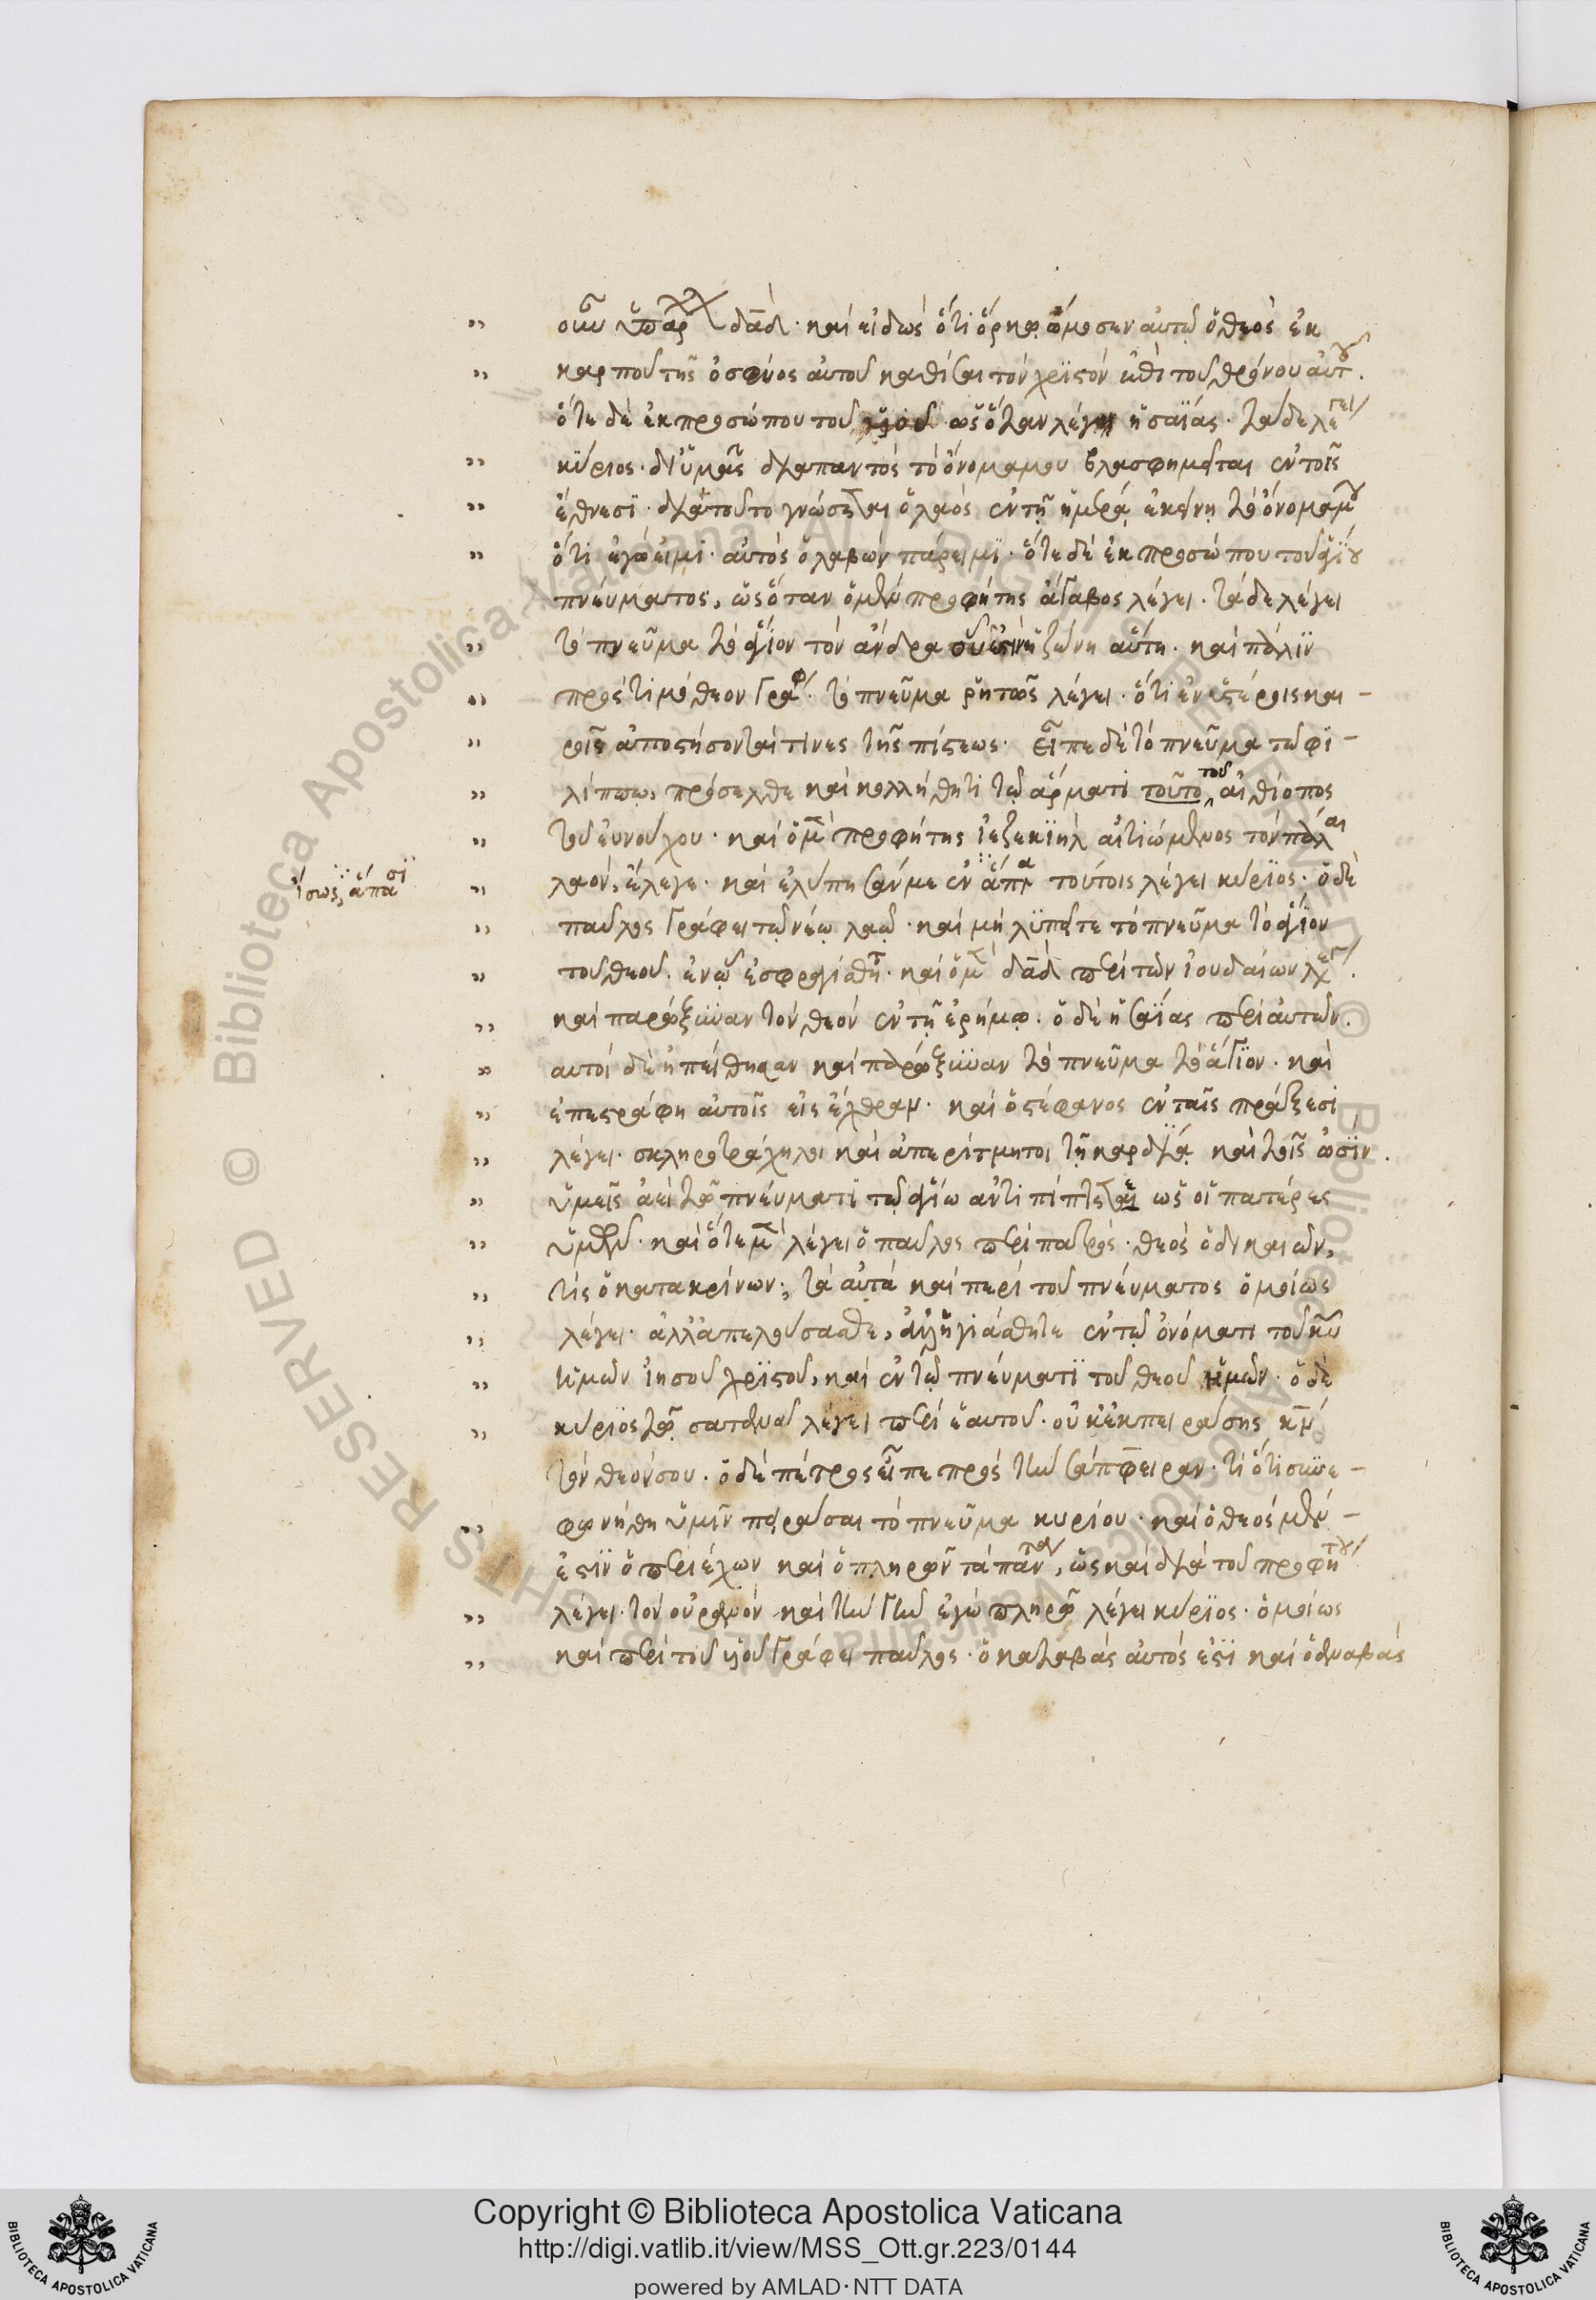 οὖν ὑπάρχων δαδ· καὶ εἰδὼς ὅτι ὅρκῳ ὤμοσεν αὐτῷ ὁ θεὸς ἐκ
καρποῦ τῆς ὀσφύος αὐτοῦ καθίσαι τὸν χριστὸν ἐπὶ τοῦ θρόνου αὐτοῦ.
ὅτε δὲ ἐκ προσώπου τοῦ υἱοῦ ὡς ὅταν λέγῃ ἡσαΐας· τάδε λέγει
κύριος· δι' ὑμᾶς διαπαντὸς τὸ ὄνομα μου βλασφημεῖται ἐν τοῖς
ἔθνεσι· διὰ τοῦτο γνώσεται ὁ λαὸς ἐν τῇ ἡμέρᾳ ἐκείνῃ τὸ ὄνομά μου
ὅτι ἐγώ εἰμι· αὐτὸς ὁ λαβὼν πάρειμι· ὅτε δὲ ἐκ προσώπου τοῦ ἁγίου
πνεύματος, ὡς ὅταν ὁ μὲν προφήτης ἄγαβος λέγει· τάδε λέγει
τὸ πνεῦμα τὸ ἅγιον τὸν ἄνδρα οὗ ἐστιν ἡ ζώνη αὕτη· καὶ πάλιν
πρὸς τιμόθεον γράφει· τὸ πνεῦμα ῥητῶς λέγει· ὅτι ἐν ὑστέροις και-
ροῖς ἀποστήσονταί τινες τῆς πίστεως· εἶπε δὲ τὸ πνεῦμα τῷ φι-
λίππῳ, πρόσελθε καὶ κολλήθητι τῷ ἅρματι τοῦτο τοῦ αἰθίοπος
τοῦ εὐνούχου· καὶ ὁ μὲν προφήτης ἰεζεκιὴλ αἰτιώμενος τὸν πάλαι
λαόν, ἔλεγε· καὶ ἐλύπησάν με ἐν ἅπα τούτοις λέγει κύριος· ὁ δὲ
ἴσως, ἅπασι
παῦλος γράφει τῷ νέῳ λαῷ· καὶ μὴ λυπεῖτε τὸ πνεῦμα τὸ ἅγιον
τοῦ θεοῦ. ἐν ᾧ ἐσφραγίσθητε· καὶ ὁ μὲν δαδ περὶ τῶν ἰουδαίων λέγει.
καὶ παρώξυναν τὸν θεὸν ἐν τῇ ἐρήμῳ. ὁ δὲ ἡσαΐας περὶ αὐτῶν.
αὐτοὶ δὲ ἠπείθησαν καὶ παρώξυναν τὸ πνεῦμα τὸ ἅγιον· καὶ
ἐπεστράφη αὐτοῖς εἰς ἔχθραν· καὶ ὁ στέφανος ἐν ταῖς πράξεσι
λέγει· σκληροτράχηλοι καὶ ἀπερίτμητοι τῇ καρδίᾳ καὶ τοῖς ὠσίν.
ὑμεῖς ἀεὶ τῷ πνεύματι τῷ ἁγίῳ ἀντιπίπτεται ὡς οἱ πατέρες
ὑμῶν· καὶ ὅτε μὲν λέγει ὁ παῦλος περὶ πατρός· θεὸς ὁ δικαιῶν,
τίς ὁ κατακρίνων; τὰ αὐτὰ καὶ περὶ τοῦ πνεύματος ὁμοίως
λέγει· ἀλλ' ἀπελούσασθε, ἀλλ' ἡγιάσθητε ἐν τῷ ὀνόματι τοῦ κυ
ἡμῶν ἰησοῦ χριστοῦ, καὶ ἐν τῷ πνεύματι τοῦ θεοῦ ἡμῶν· ὁ δὲ
κύριος τῷ σατανᾷ λέγει περὶ ἑαυτοῦ· οὐκ ἐκπειράσεις κν
τὸν θεόν σου. ὁ δὲ πέτρος εἶπε πρὸς τὴν σάπφειραν· τί ὅτι συνε-
φωνήθη ὑμῖν πειρᾶσαι τὸ πνεῦμα κυρίου· καὶ ὁ θεὸς μέν
ἐστιν ὁ περιέχων καὶ ὁ πληρῶν τὰ πάντα, ὡς καὶ διὰ τοῦ προφήτου
λέγει· τὸν οὐρανὸν καὶ τὴν γῆν ἐγὼ πληρῶ λέγει κύριος· ὁμοίως
καὶ περὶ τοῦ υἱοῦ γράφει παῦλος· ὁ καταβὰς αὐτός ἐστι καὶ ὁ ἀναβὰς
Copyright © Biblioteca Apostolica Vaticana
http://digi.vatlib.it/view/MSS_Ott.gr.223/0144
powered by AMLAD·NTT DATA